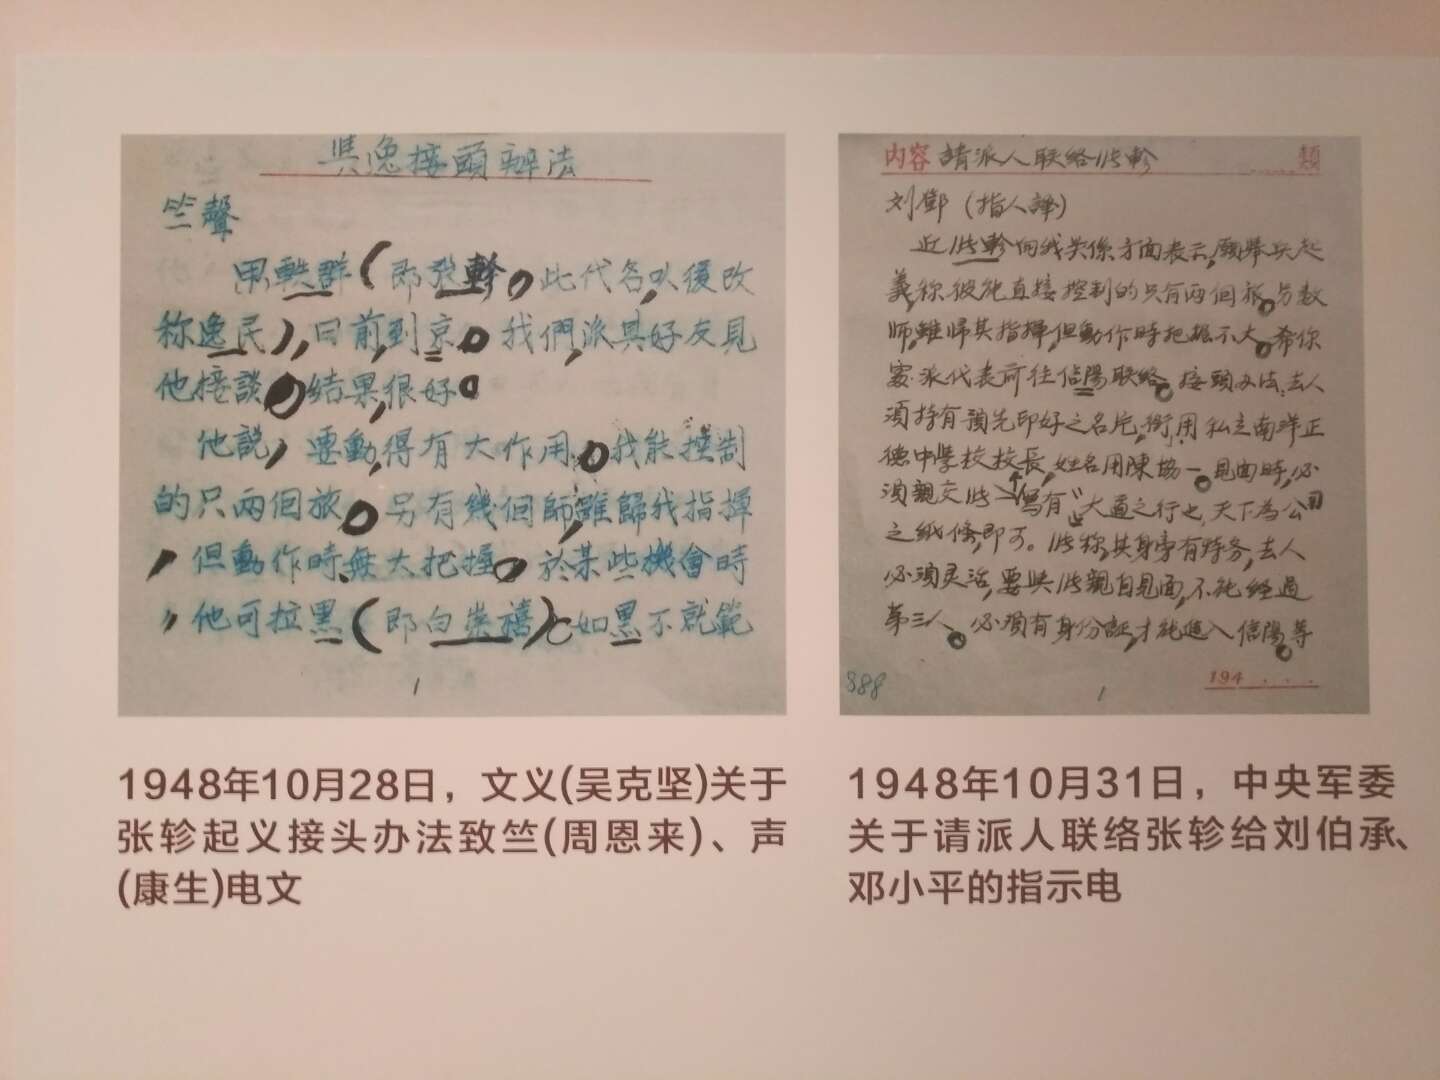 與逸接頭辦法
竺聲
用軼群（即張軫，此代名以後改
称逸民），日前到京。我們派其好友見
他接談，結果很好。
他說，要動，得有大作用。我能控制
的只两個旅。另有幾個師，雖歸我指揮
，但動作時無大把握。於某些機會時
，他可拉黑（即白崇禧）。如黑不就範
1
内容 請派人联络张軫 類
刘鄧（指人譯）
近张軫向我关係方面表示，願举兵起
義，称彼能直接控制的只有两個旅。另数
師，雖归其指揮，但動作時把握不大。希你
处派代表前往信陽联络。接頭办法，去人
須持有預先印好之名片，銜用私立南洋正
德中学校校長，姓名用陳协一。見面時，必
須親交张寫有“大道之行也，天下為公”
之紙條，即可。张称其身旁有特务，去人
必須灵活，要與张親自見面，不能經過
第三人。必須有身份証，才能進入信陽等
388
1
194
1948年10月28日，文义(吴克坚)关于
张轸起义接头办法致竺(周恩来)、声
(康生)电文
1948年10月31日，中央军委
关于请派人联络张轸给刘伯承、
邓小平的指示电